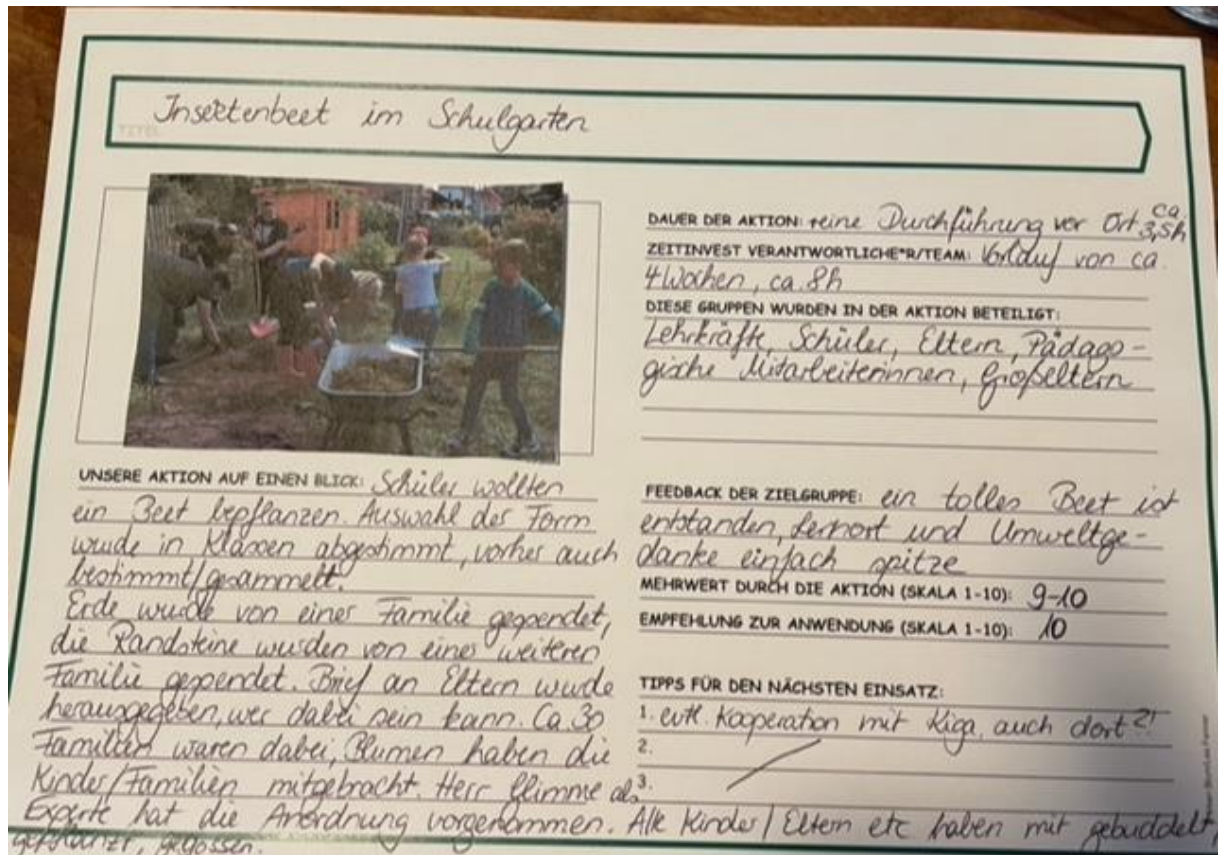 Insektenbeet im Schulgarten
TITEL
DAUER DER AKTION: reine Durchführung vor Ort ca. 3,5h
ZEITINVEST VERANTWORTLICHE*R/TEAM: Vorlauf von ca.
4 Wochen, ca. 8h
DIESE GRUPPEN WURDEN IN DER AKTION BETEILIGT:
Lehrkräfte, Schüler, Eltern, Pädago-
gische Mitarbeiterinnen, Großeltern
UNSERE AKTION AUF EINEN BLICK: Schüler wollten
ein Beet bepflanzen. Auswahl der Form
wurde in Klassen abgestimmt, vorher auch
bestimmt/gesammelt.
Erde wurde von einer Familie gespendet,
die Randsteine wurden von einer weiteren
Familie gespendet. Brief an Eltern wurde
herausgegeben, wer dabei sein kann. Ca. 30
Familien waren dabei, Blumen haben die
Kinder/Familien mitgebracht. Herr als
Experte hat die Anordnung vorgenommen. Alle Kinder/Eltern etc haben mit gebuddelt,
gepflanzt, gegossen.
FEEDBACK DER ZIELGRUPPE: ein tolles Beet ist
entstanden, Lernort und Umweltge-
danke einfach spitze
MEHRWERT DURCH DIE AKTION (SKALA 1-10): 9-10
EMPFEHLUNG ZUR ANWENDUNG (SKALA 1-10): 10
TIPPS FÜR DEN NÄCHSTEN EINSATZ:
1. evtl. Kooperation mit Kiga, auch dort?!
2.
3.